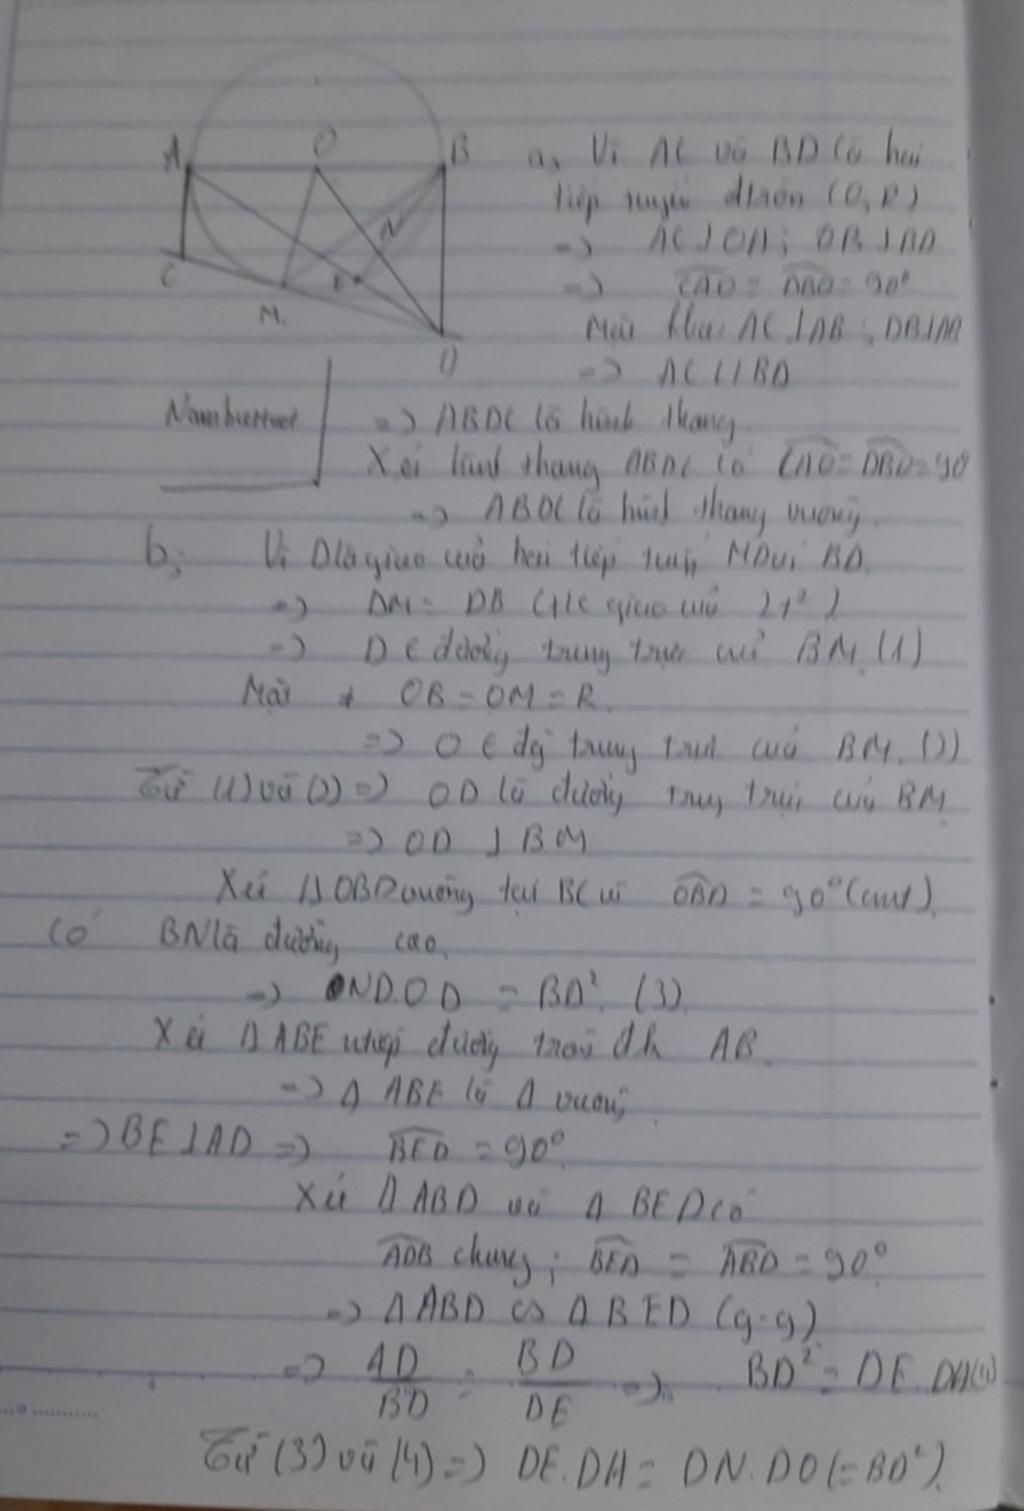 A O B
N
C E
M
D
a, Vì AC và BD là hai
tiếp tuyến đtròn (O, R)
=> AC ⊥ OA; OB ⊥ BD
=> CAO = DBO = 90°
Mặt khác AC ⊥ AB; DB ⊥ AB
=> AC // BD
=> ABDC là hình thang
Xét hình thang ABDC có CAO = DBO = 90
=> ABDC là hình thang vuông.
b; Vì D là giao của hai tiếp tuyến MD và BD.
=> DM = DB (t/c giao của 2 t²)
=> D ∈ đường trung trực của BM (1)
Mặt ≠ OB = OM = R
=> O ∈ đg trung trực của BM. (2)
Từ (1) và (2) => OD là đường trung trực của BM
=> OD ⊥ BM
Xét Δ OBD vuông tại B vì OBD = 90° (cmt).
Có BN là đường cao.
=> ND.OD = BD². (3)
Xét Δ ABE nội tiếp đường tròn đk AB
=> Δ ABE là Δ vuông
=> BE ⊥ AD => BED = 90°
Xét Δ ABD và Δ BED có
ADB chung; BED = ABD = 90°
=> Δ ABD ∽ Δ BED (g.g)
=> AD/BD = BD/DE => BD² = DE.DA (4)
Từ (3) và (4) => DE.DA = DN.DO (= BD²).